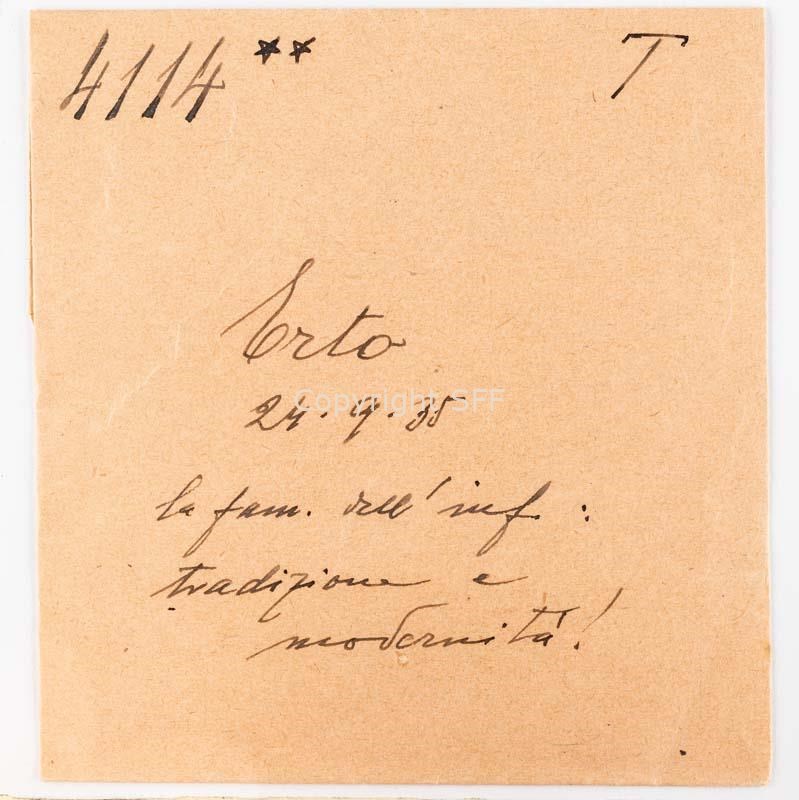 4114 ** T
Erto
Copyright SFF
24.9.35
la fam. dell'inf.:
tradizione e
modernità!